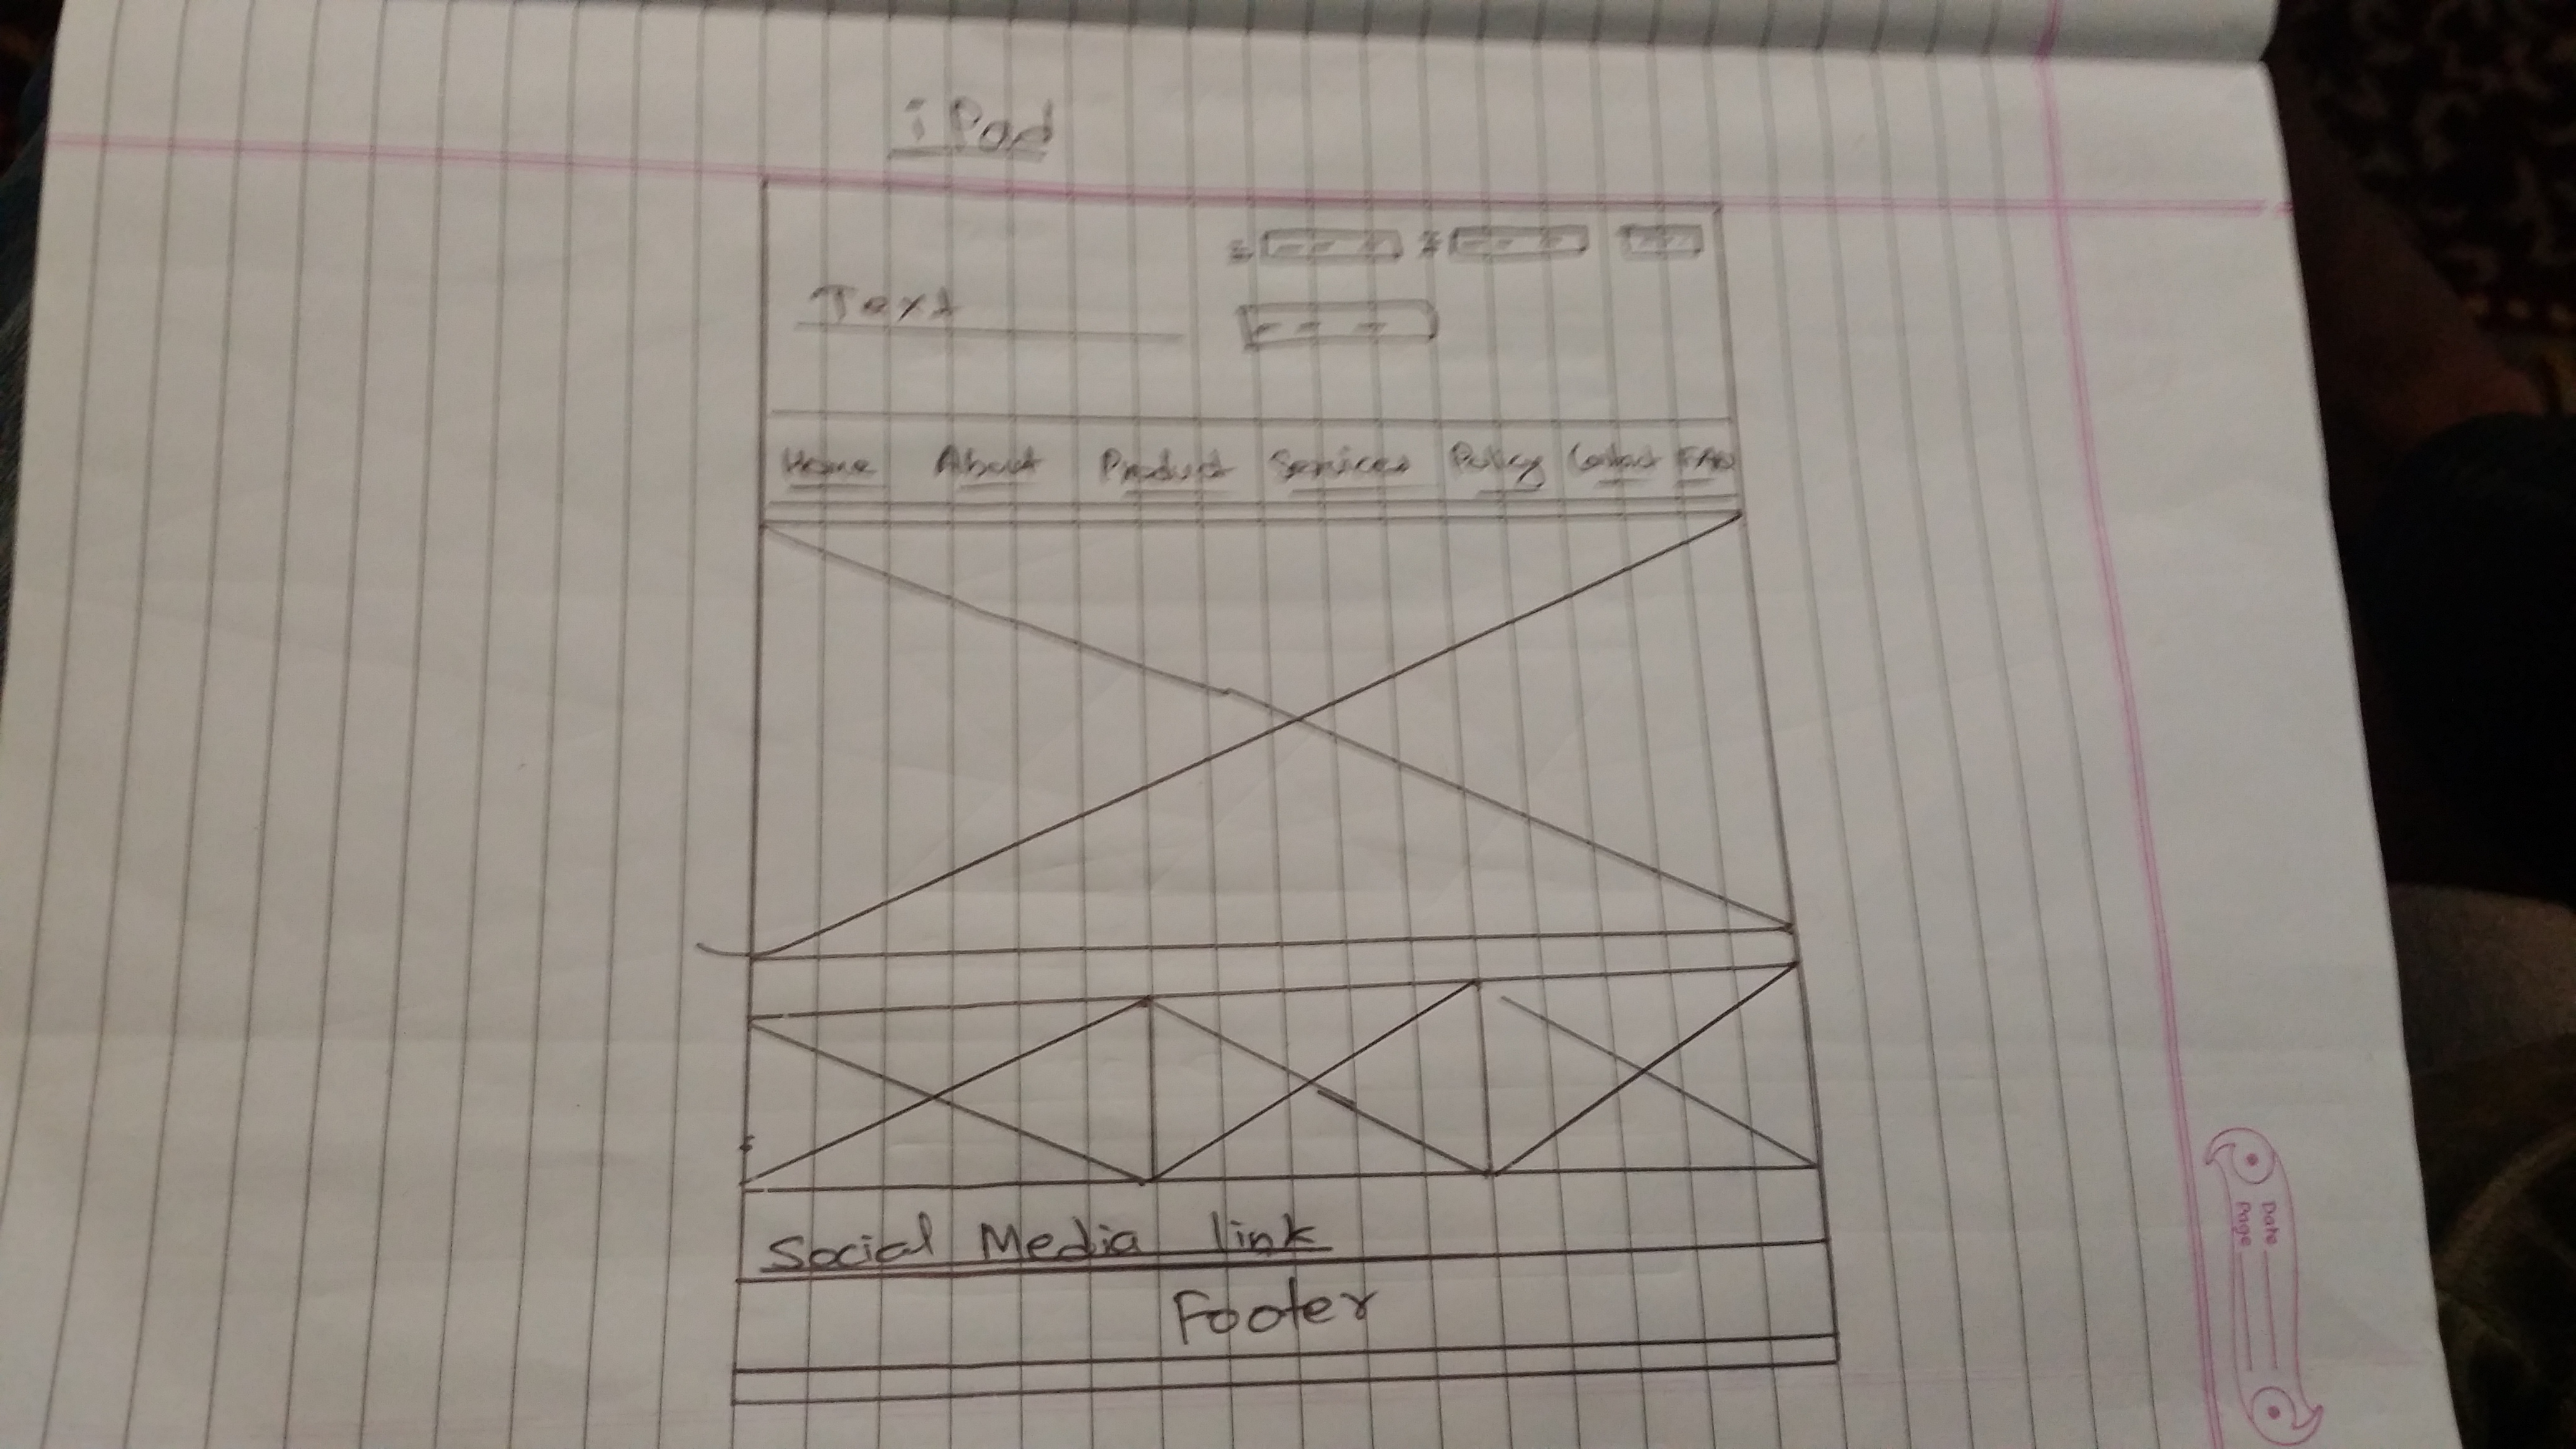 iPad
Text
Home About Product Services Policy Contact FAQ
Social Media link
Footer
Date
Page